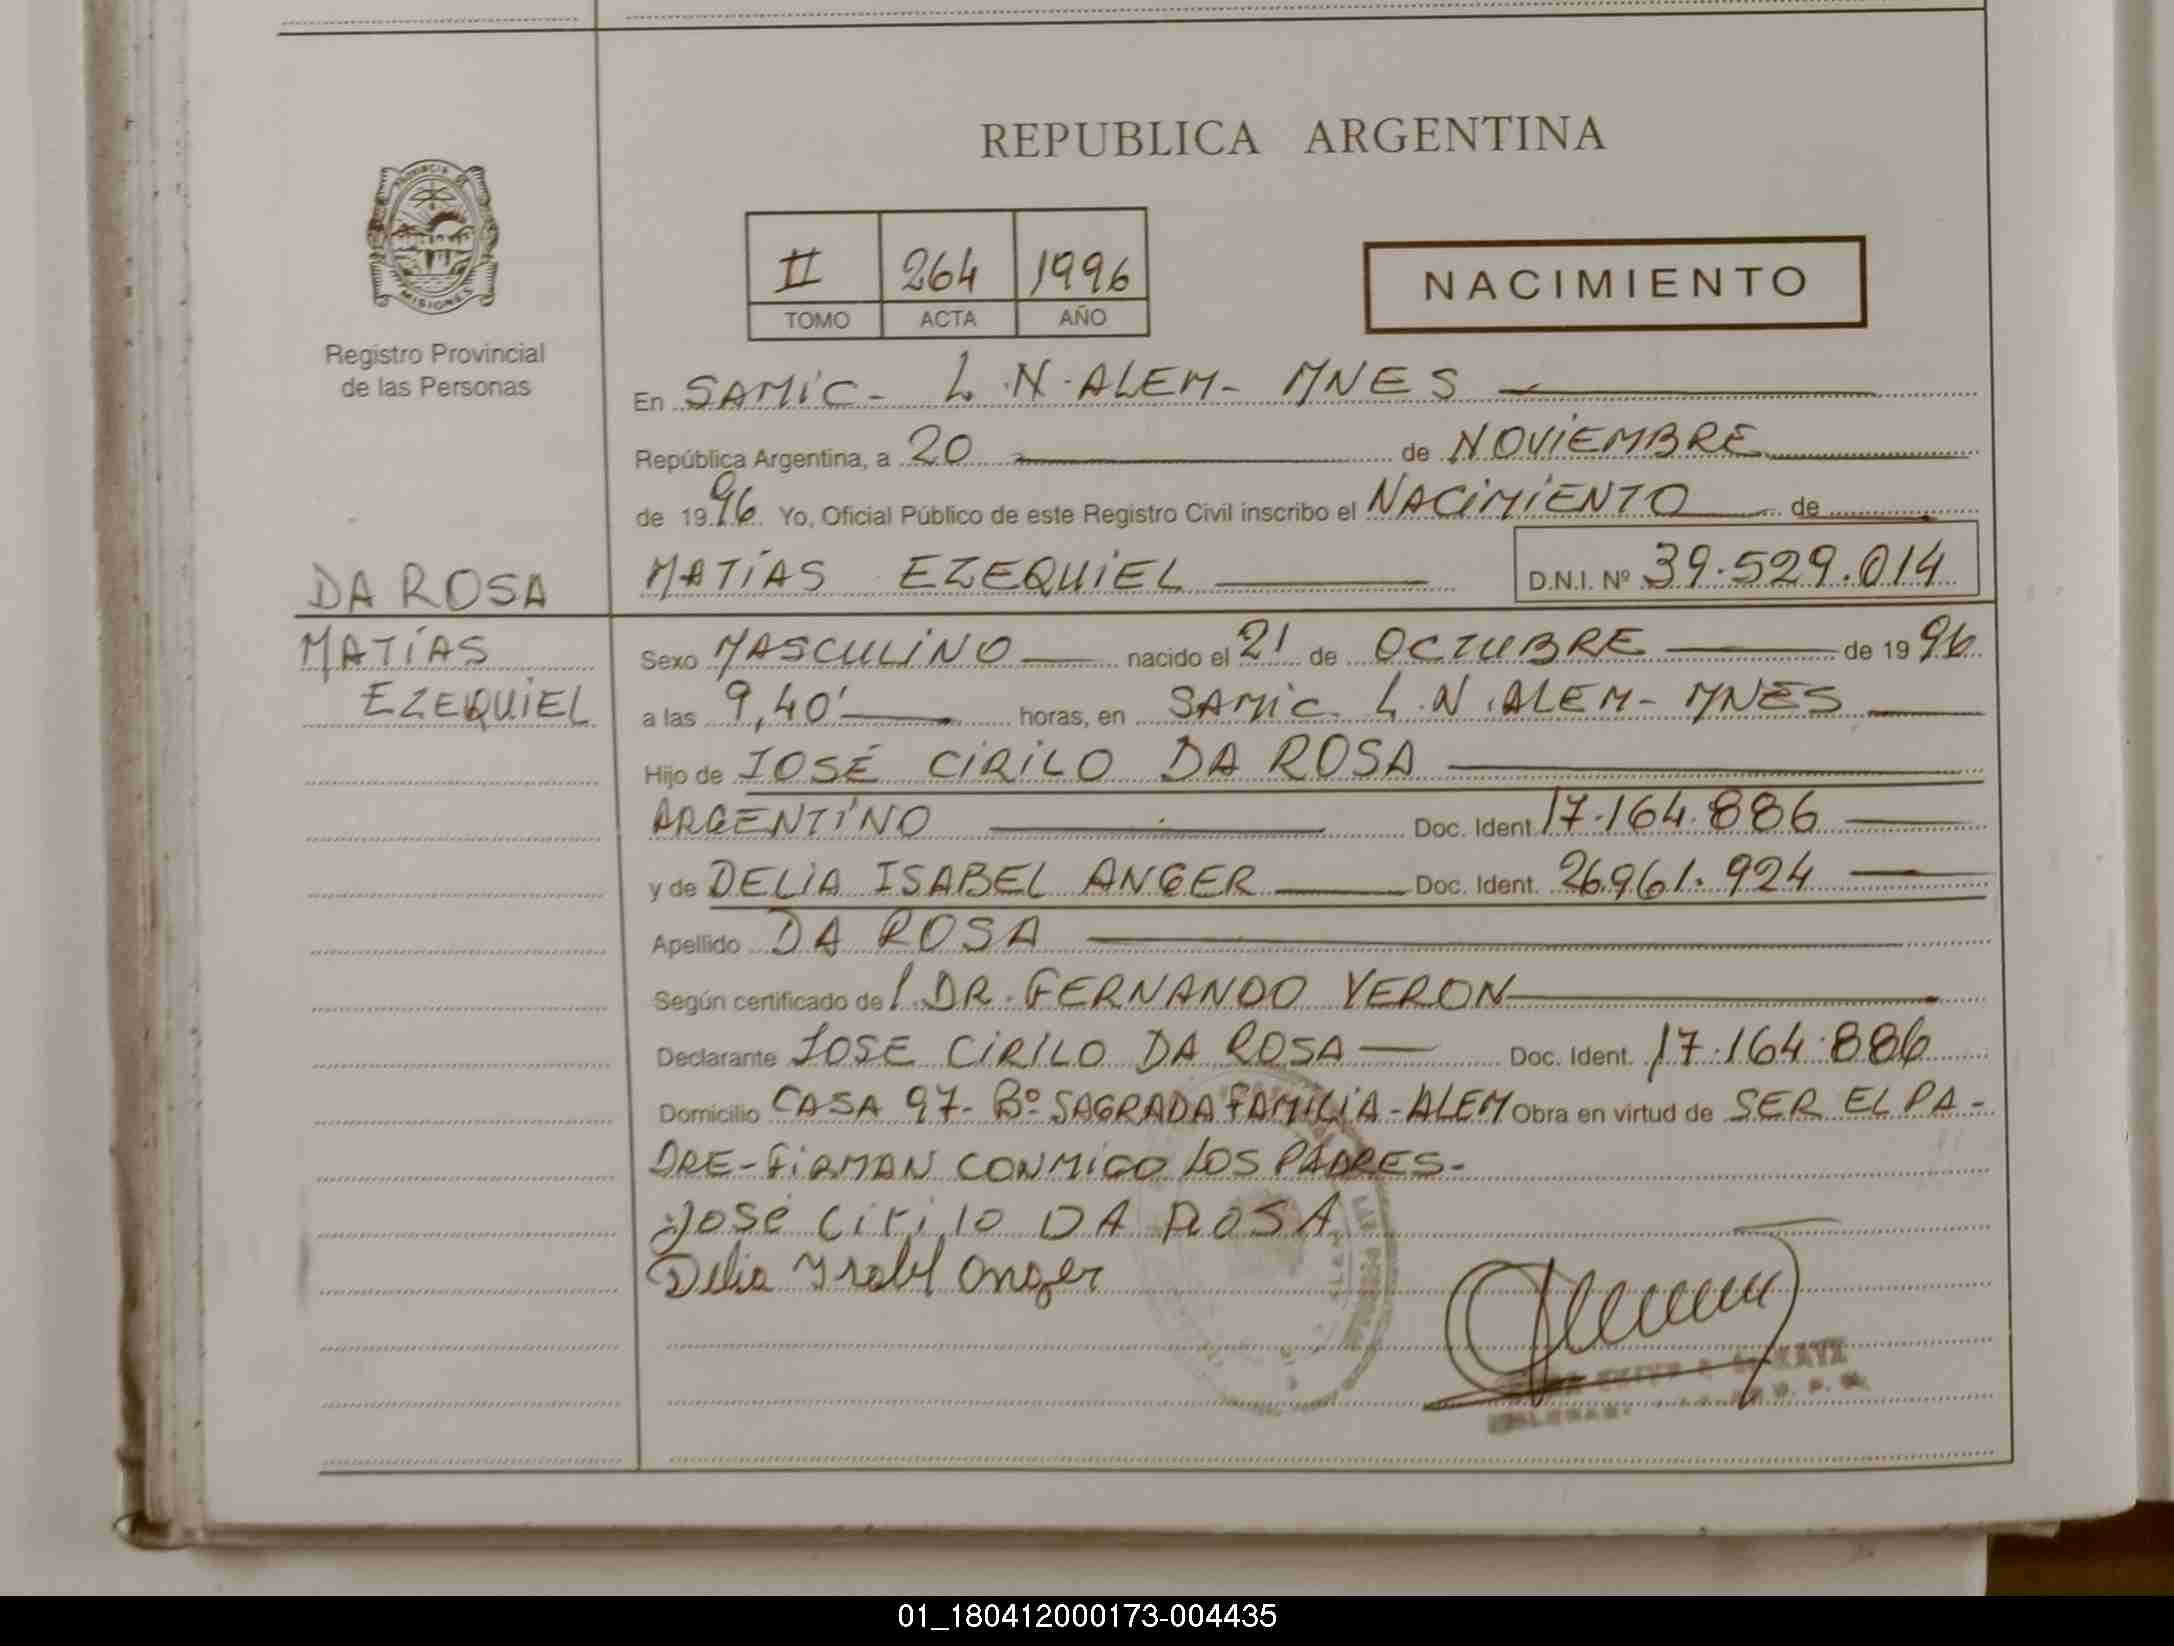 REPUBLICA ARGENTINA
PROVINCIA DE
MISIONES
Registro Provincial
de las Personas
II 264 1996
TOMO ACTA AÑO
NACIMIENTO
En SAMIC - L.N. ALEM - MNES
República Argentina, a 20 de NOVIEMBRE
de 1996 Yo, Oficial Público de este Registro Civil inscribo el NACIMIENTO de
DA ROSA
MATÍAS EZEQUIEL D.N.I. Nº 39.529.014
MATÍAS
EZEQUIEL
Sexo MASCULINO nacido el 21 de OCTUBRE de 1996
a las 9,40' horas, en SAMIC L.N. ALEM - MNES
Hijo de JOSÉ CIRILO DA ROSA
ARGENTINO Doc. Ident. 17.164.886
y de DELIA ISABEL ANGER Doc. Ident. 26.961.924
Apellido DA ROSA
Según certificado del DR. FERNANDO VERON
Declarante JOSE CIRILO DA ROSA Doc. Ident. 17.164.886
Domicilio CASA 97 - Bº SAGRADA FAMILIA - ALEM Obra en virtud de SER EL PA-
DRE - FIRMAN CONMIGO LOS PADRES.
José Cirilo DA ROSA
Delia Ysabel Anger
01_180412000173-004435